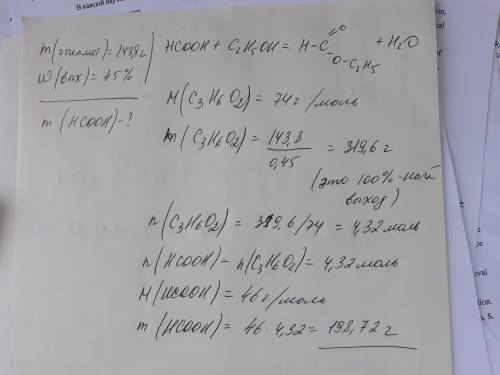 В каждой
m(этилмет) = 143,8 г
W(вых) = 45%
m (HCOOH) - ?
HCOOH + C2H5OH = H-C
O
O-C2H5
+ H2O
M(C3H6O2) = 74 г/моль
m(C3H6O2) = 143,8 / 0,45 = 319,6 г
(это 100%-ный
выход)
n(C3H6O2) = 319,6/74 = 4,32 моль
n(HCOOH) = n(C3H6O2) = 4,32 моль
M(HCOOH) = 46 г/моль
m(HCOOH) = 46 · 4,32 = 198,72 г